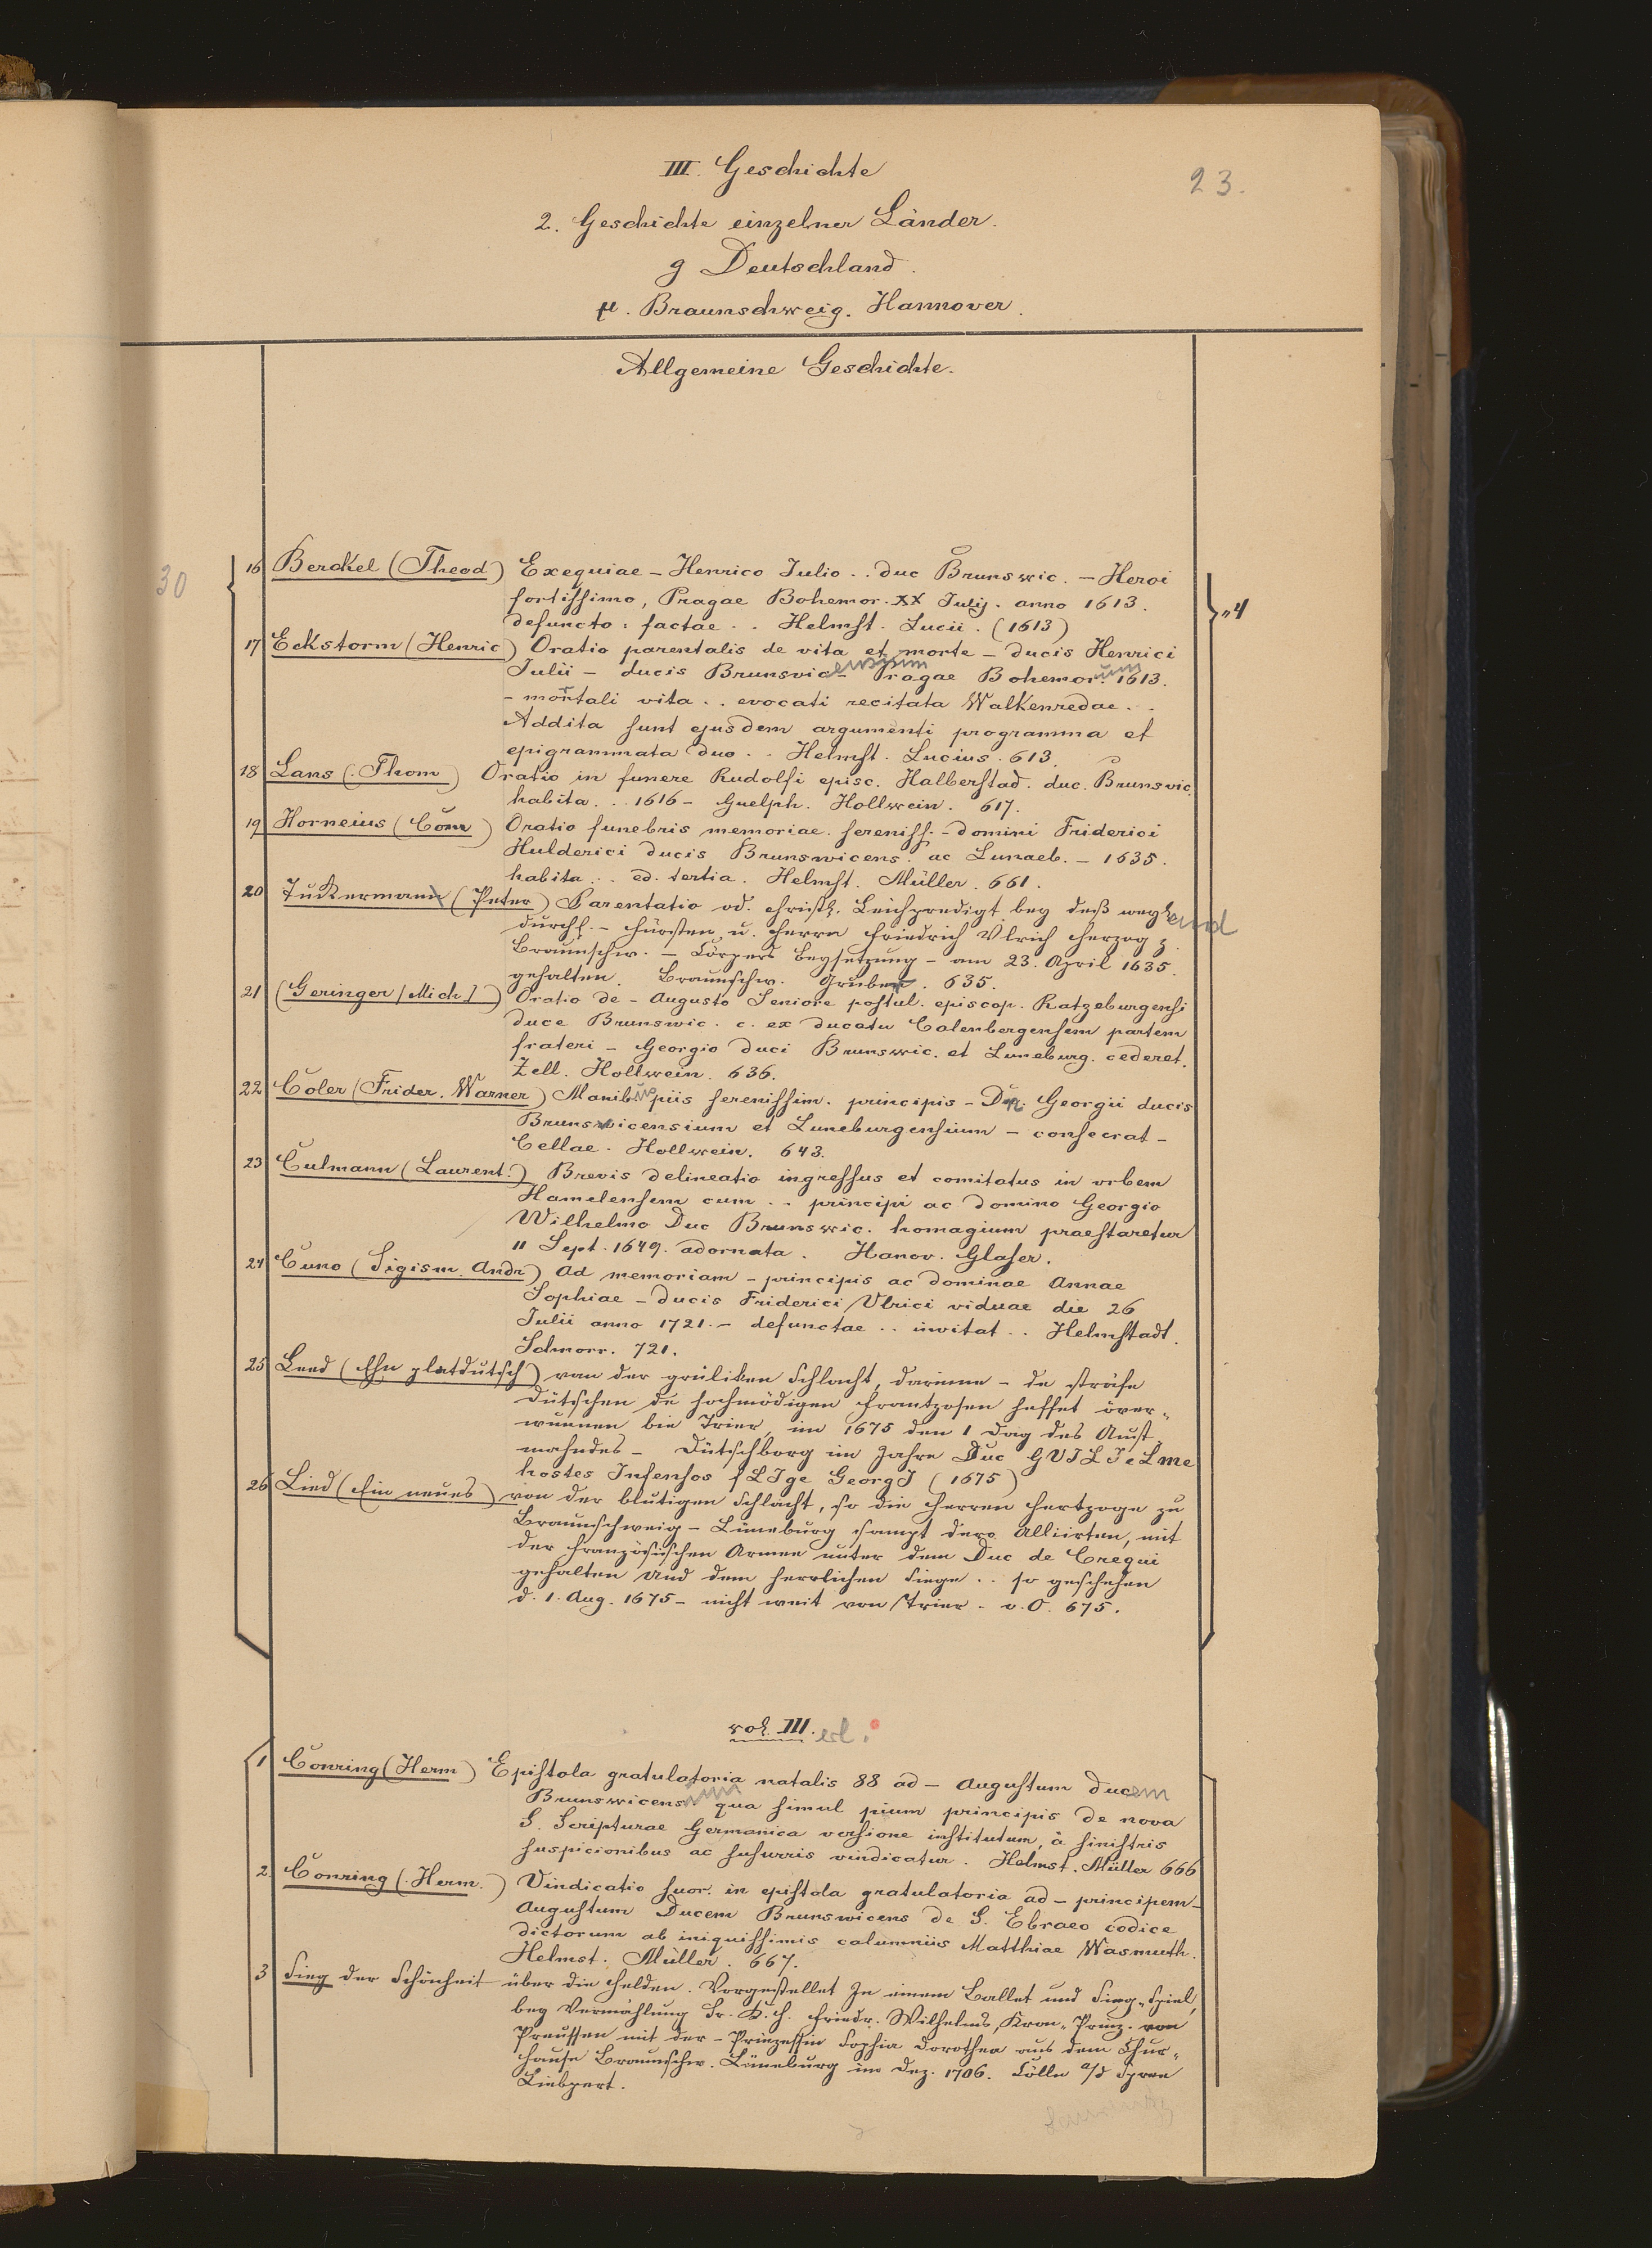 III. Geschichte
23.
2. Geschichte einzelner Länder.
g Deutschland.
µ. Braunschweig. Hannover.
Allgemeine Geschichte.
30
16 Berckel (Theod) Exequiae – Henrico Julio .. duc Brunswic. – Heroi
fortissimo, Pragae Bohemor. XX Julij. anno 1613.
defuncto: factae .. Helmst. Lucii. (1613)
"4
17 Eckstorm (Henric) Oratio parentalis de vita et morte – ducis Henrici
Julii – ducis Brunsvicensium – Pragae Bohemorum 1613.
– mortali vita .. evocati recitata Walkenredae ..
Addita sunt ejusdem argumenti programma et
epigrammata duo .. Helmst. Lucius. 613.
18 Lans (Thom) Oratio in funere Rudolfi episc. Halberstad. duc. Brunsvic.
habita .. 1616 – Guelph. Hollwein. 617.
19 Horneius (Conr) Oratio funebris memoriae sereniss. – domini Friderici
Hulderici ducis Brunswicens. ac Lunaeb. – 1635.
habita .. ed. tertia. Helmst. Müller. 661.
20 Tuckermann (Peter) Parentatio od. christl. Leichpredigt bey deß weyland
durchl. – Fürsten u. Herrn Friedrich Ulrich Herzog z.
Braunschw. – Cörpers Beysetzung – am 23. April 1635.
gehalten. Braunschw. Gruber. 635.
21 (Geringer [Mich]) Oratio de – Augusto Seniore postul. episcop. Ratzeburgensi
duce Brunswic. c. ex ducatu Calenbergensem partem
frateri – Georgio duci Brunswic. et Luneburg. cederet.
Zell. Hollwein. 636.
22 Coler (Frider. Warner) Manibus piis serenissim. principis – Dn. Georgii ducis
Brunsvicensium et Luneburgensium – consecrat –
Cellae. Hollwein. 643.
23 Culmann (Laurent.) Brevis delineatio ingressus et comitatus in urbem
Hamelensem cum .. principi ac domino Georgio
Wilhelmo Duc Brunswic. homagium praestaretur
11 Sept. 1649. adornata. Hanov. Glaser.
24 Cuno (Sigism. Andr) Ad memoriam – principis ac dominae Annae
Sophiae – ducis Friderici Ulrici viduae die 26
Julii anno 1721. – defunctae .. invitat .. Helmstadt.
Schnorr. 721.
25 Leed (Ehn platdütsch) van der grüliken Schlacht, darinne – de sträfe
Dütschen de hochmödigen Frantzosen heffet över-
wunnen bie Trier, im 1675 den 1 Dag des Aust
mahndes – Dütschborg im Jahre Duc GVILIeLme
hostes Infensos fLIge GeorgI (1675)
26 Lied (Ein neues) von der blutigen Schlacht, so die Herren Hertzoge zu
Braunschweig – Lüneburg sampt dero Alliirten, mit
der Französischen Armee unter dem Duc de Crequi
gehalten und dem herrlichen Siege .. so geschehen
d. 1. Aug. 1675 – nicht weit von Trier – o. O. 675.
vol. III.
1 Conring (Herm) Epistola gratulatoria natalis 88 ad – Augustum ducem
Brunswicensium qua simul pium principis de nova
S. Scripturae Germanica versione institutum, à sinistris
suspicionibus ac susurris vindicatur. Helmst. Müller 666
2. Conring (Herm.) Vindicatio suor. in epistola gratulatoria ad – principem –
Augustum Ducem Brunswicens de S. Ebraeo codice
dictorum ab iniquissimis calumniis Matthiae Wasmuth.
Helmst. Müller. 667.
3 Sieg der Schönheit über die Helden. Vorgestellet In einem Ballet und Sing-Spiel,
bey Vermählung Sr. K. H. Friedr. Wilhelms, Kron-Prinz. von
Preussen mit der – Prinzessin Sophia Dorothea aus dem Chur-
hause Braunschw. Lüneburg im Dez. 1706. Cölln a/d Spree
Liebpert.